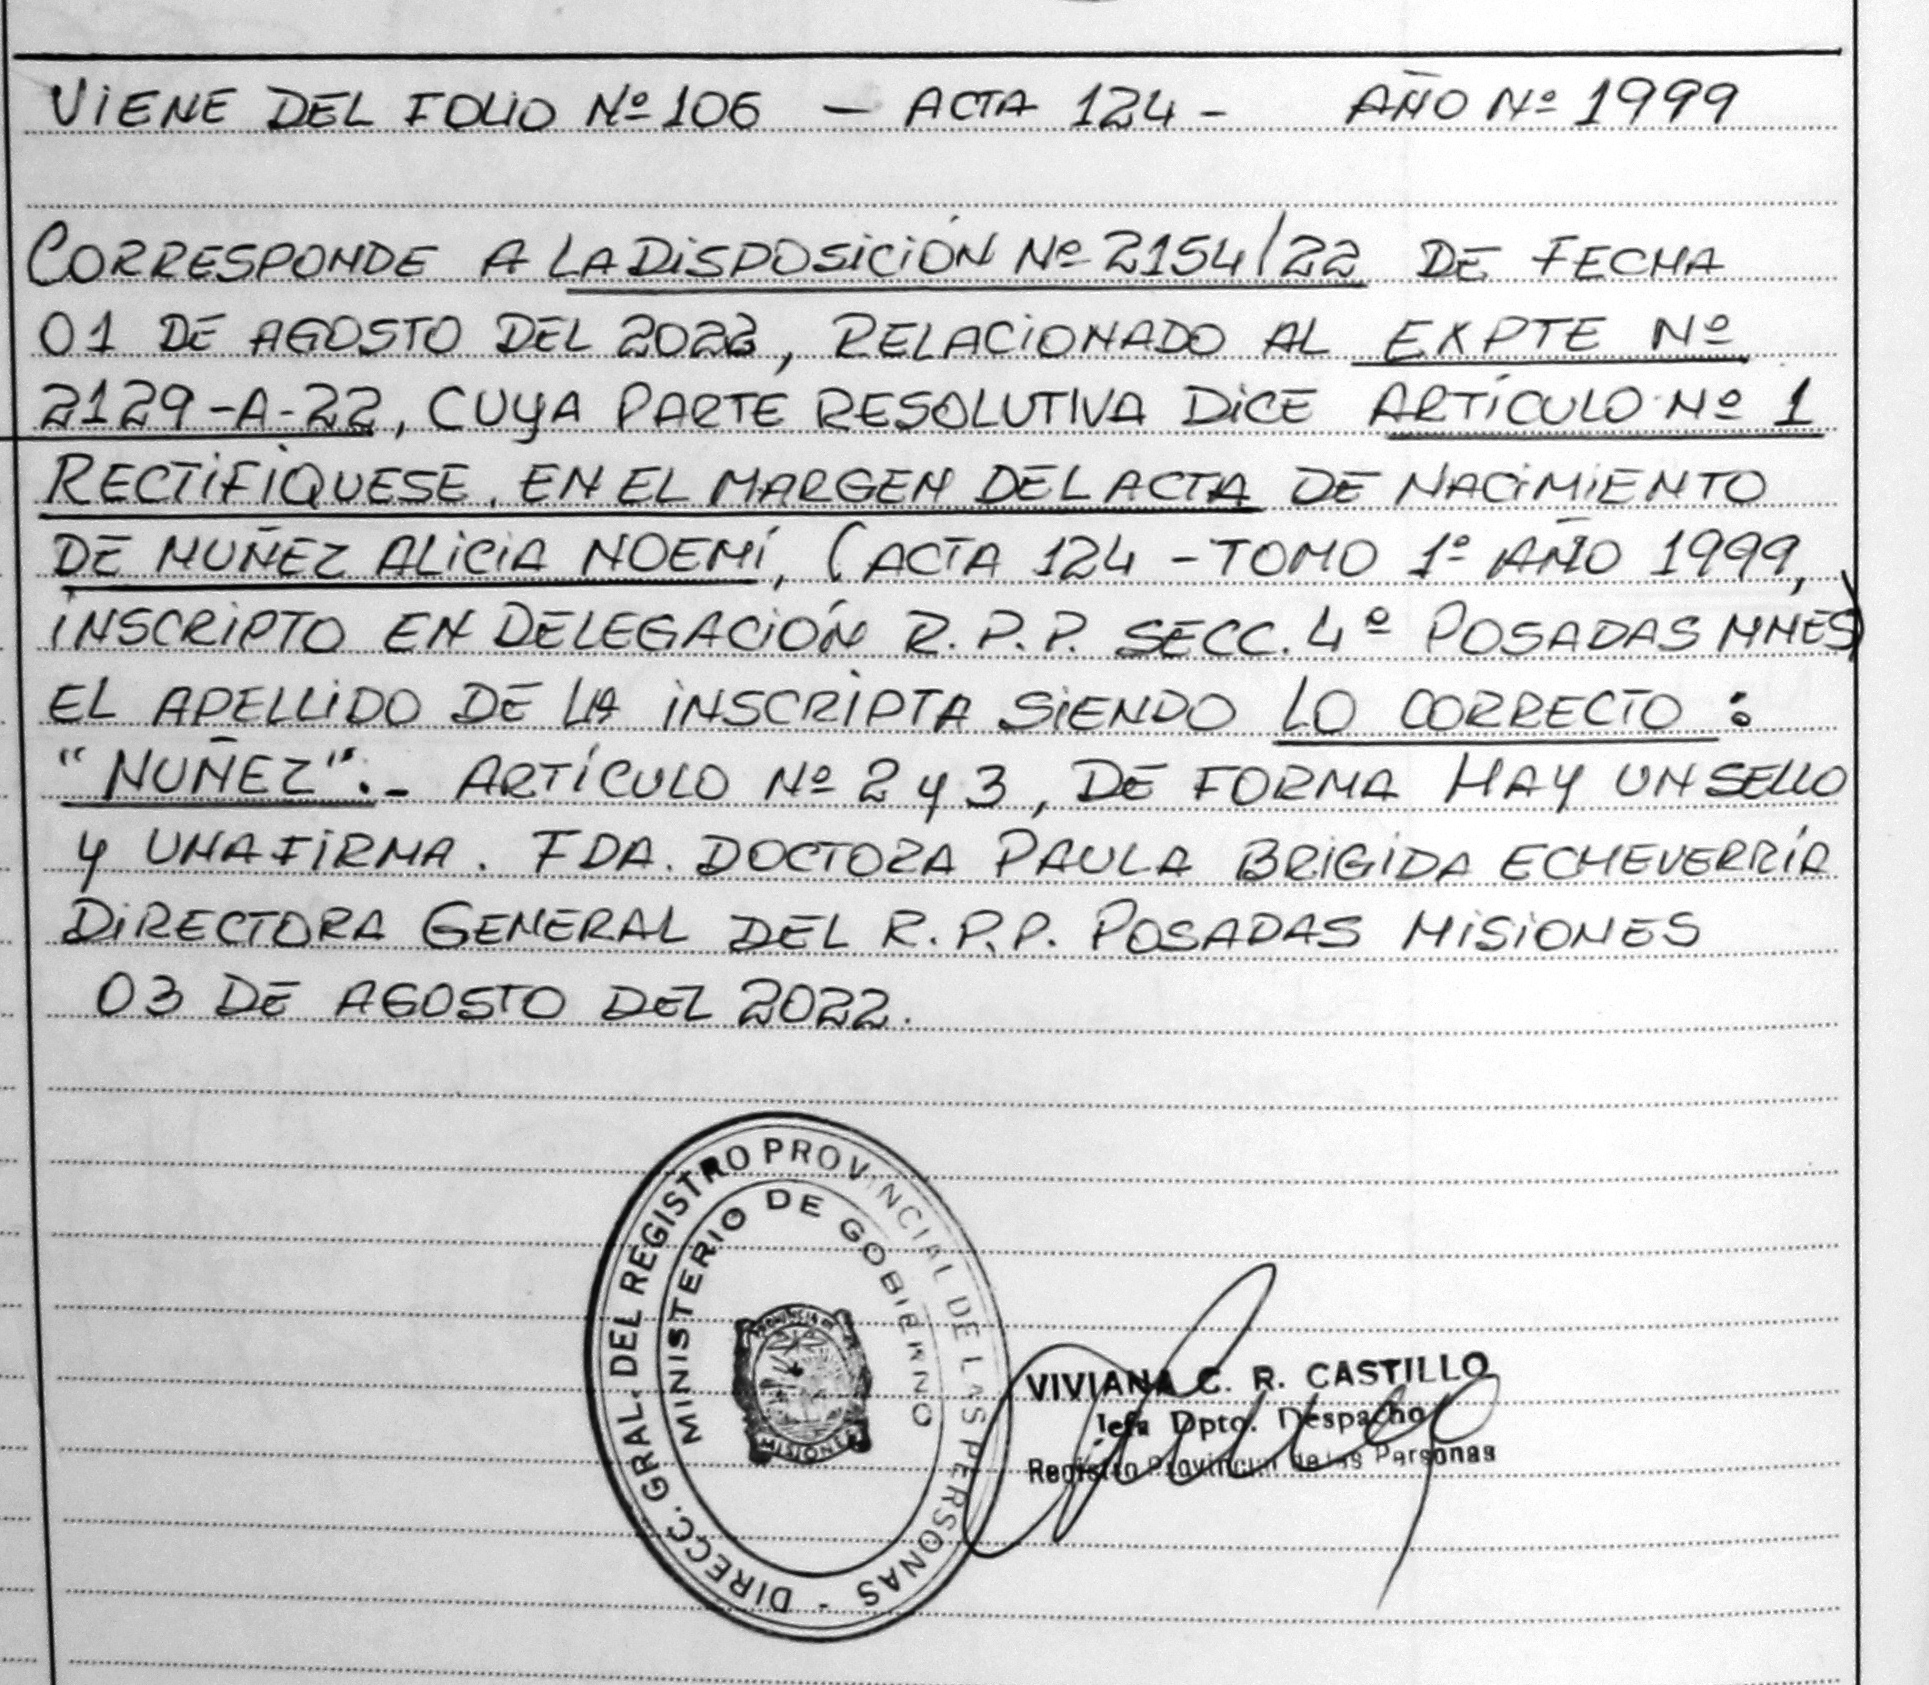 VIENE DEL FOLIO Nº 106 - ACTA 124 - AÑO Nº 1999
CORRESPONDE A LA DISPOSICIÓN Nº 2154/22 DE FECHA
01 DE AGOSTO DEL 2022, RELACIONADO AL EXPTE Nº
2129-A-22, CUYA PARTE RESOLUTIVA DICE ARTÍCULO Nº 1
RECTIFIQUESE, EN EL MARGEN DEL ACTA DE NACIMIENTO
DE NUÑEZ ALICIA NOEMÍ, (ACTA 124 - TOMO 1º AÑO 1999,
INSCRIPTO EN DELEGACIÓN R.P.P. SECC. 4º POSADAS MNES)
EL APELLIDO DE LA INSCRIPTA SIENDO LO CORRECTO:
"NUÑEZ".- ARTÍCULO Nº 2 Y 3, DE FORMA HAY UN SELLO
Y UNA FIRMA. FDA. DOCTORA PAULA BRIGIDA ECHEVERRÍA
DIRECTORA GENERAL DEL R.P.P. POSADAS MISIONES
03 DE AGOSTO DEL 2022.
DIRECC. GRAL. DEL REGISTRO PROVINCIAL DE LAS PERSONAS -
MINISTERIO DE GOBIERNO
PROVINCIA DE
MISIONES
VIVIANA C. R. CASTILLO
Jefa Dpto. Despacho
Registro Provincial de las Personas